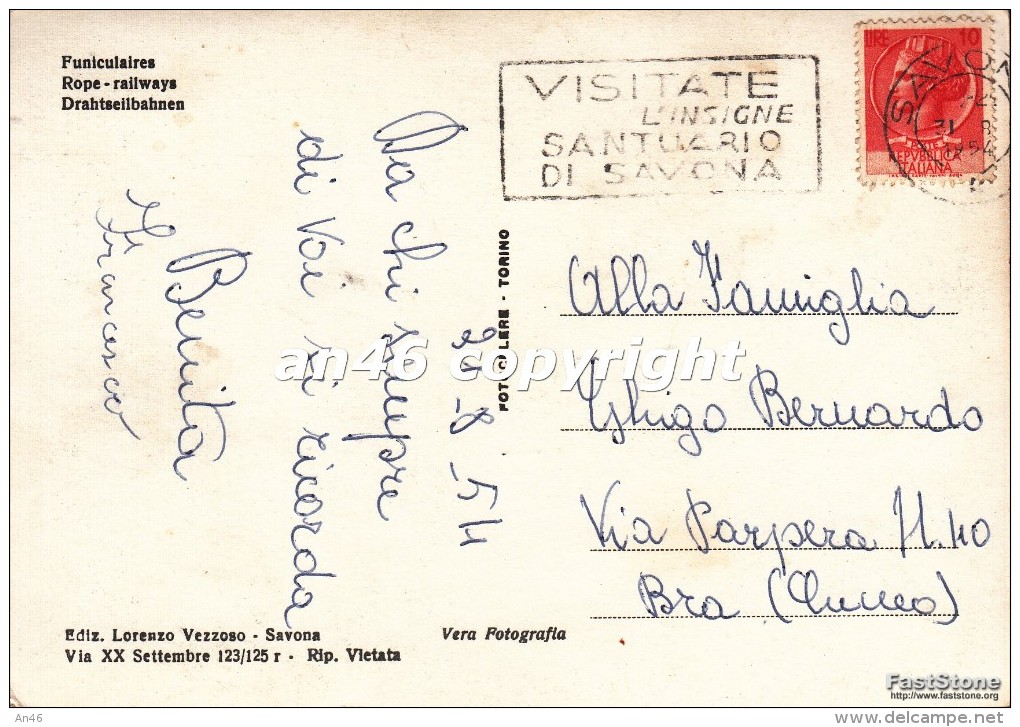 Funiculaires
Rope - railways
Drahtseilbahnen
VISITATE
L'INSIGNE
SANTUARIO
DI SAVONA
LIRE 10
REPVBBLICA
ITALIANA
SAVONA
31 8
1954
31-8-54
Da chi sempre
di Voi si ricorda
Benita
Francesco
FOTOCELERE - TORINO
Alla Famiglia
Bernardo
Via Parpera N. 40
Bra (Cuneo)
Ediz. Lorenzo Vezzoso - Savona
Via XX Settembre 123/125 r - Rip. Vietata
Vera Fotografia
an46 copyright
FastStone
http://www.faststone.org
An46
delcampe.net